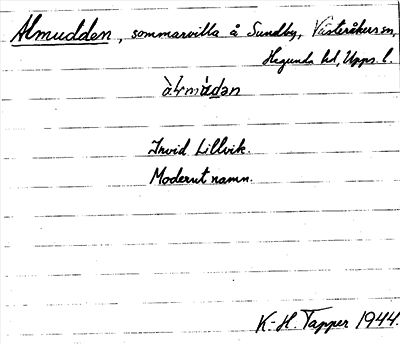 Almudden, sommarvilla å Sundby, Västeråkers sn,
Hagunda hd, Upps. l.
Arvid Lillvik.
Modernt namn.
K-H. Tapper 1944.